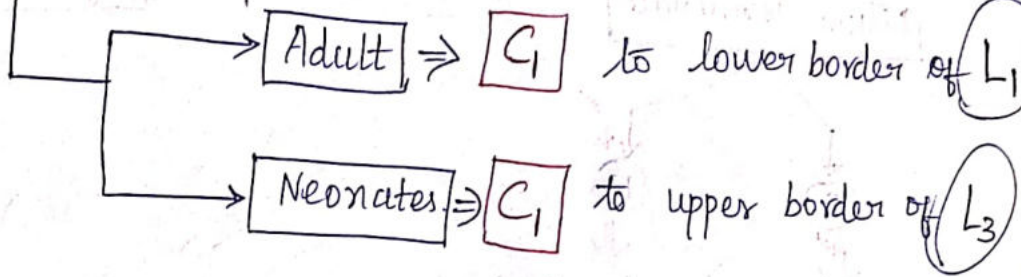 Adult ⇒ C1 to lower border of L1
Neonates ⇒ C1 to upper border of L3